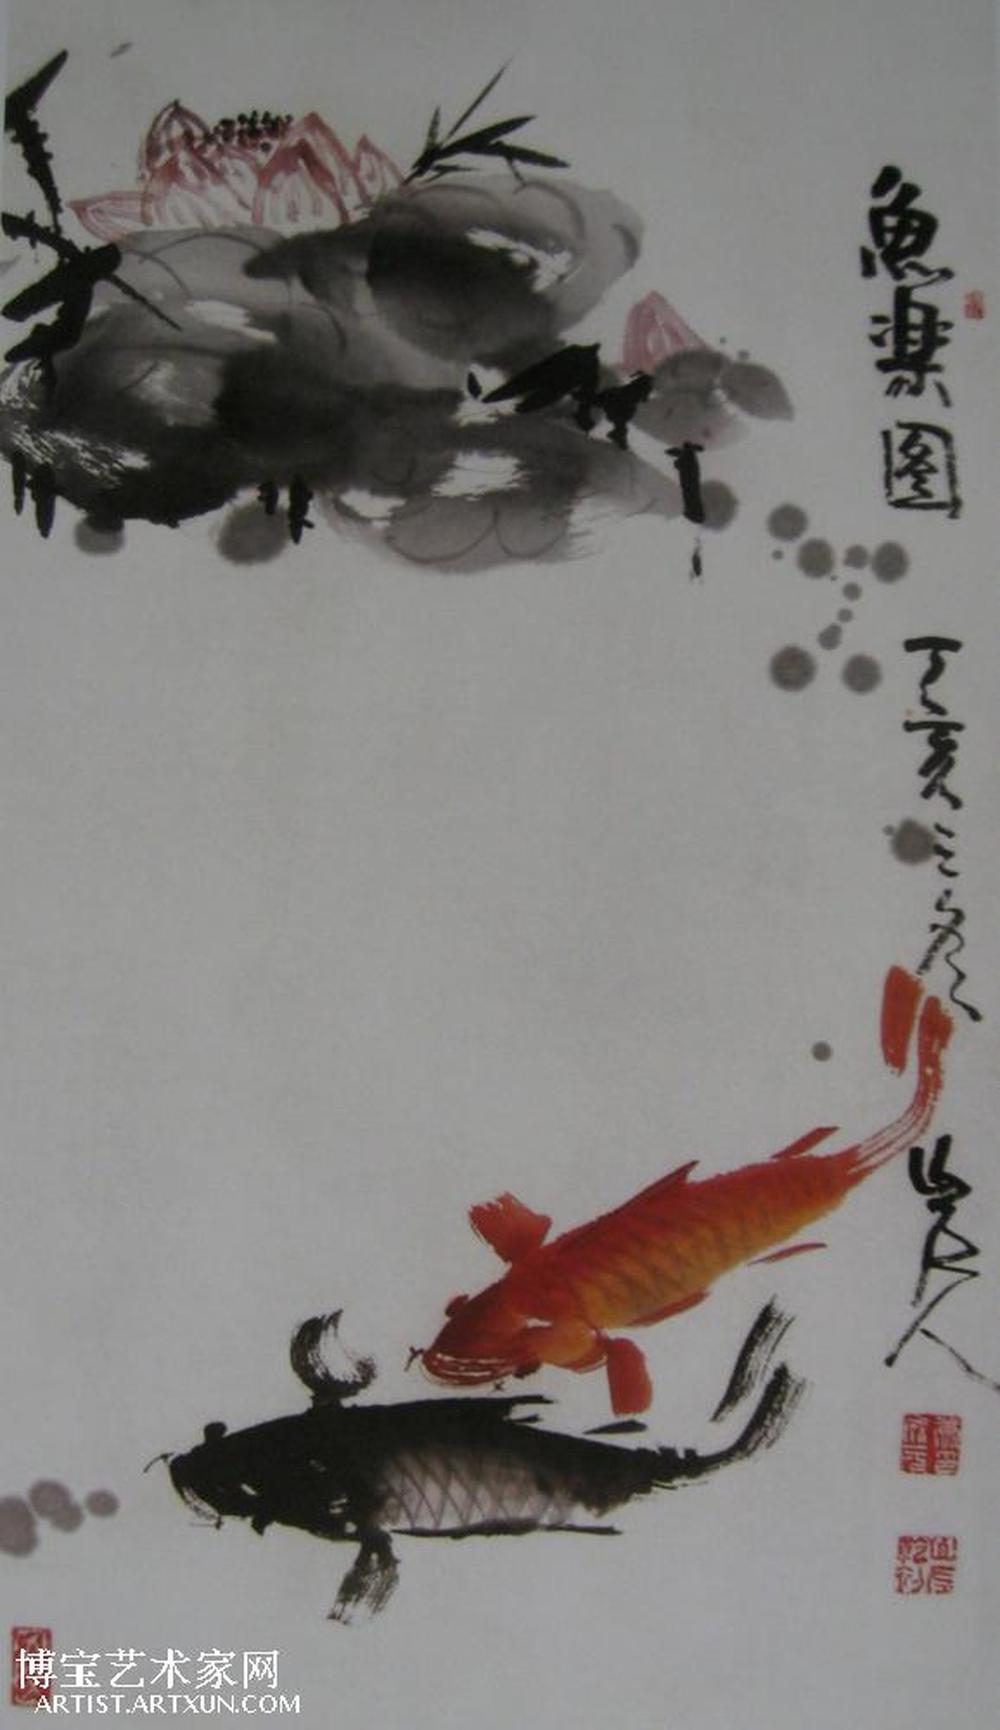 魚樂图
丁亥之冬
山民人
博宝艺术家网
ARTIST.ARTXUN.COM